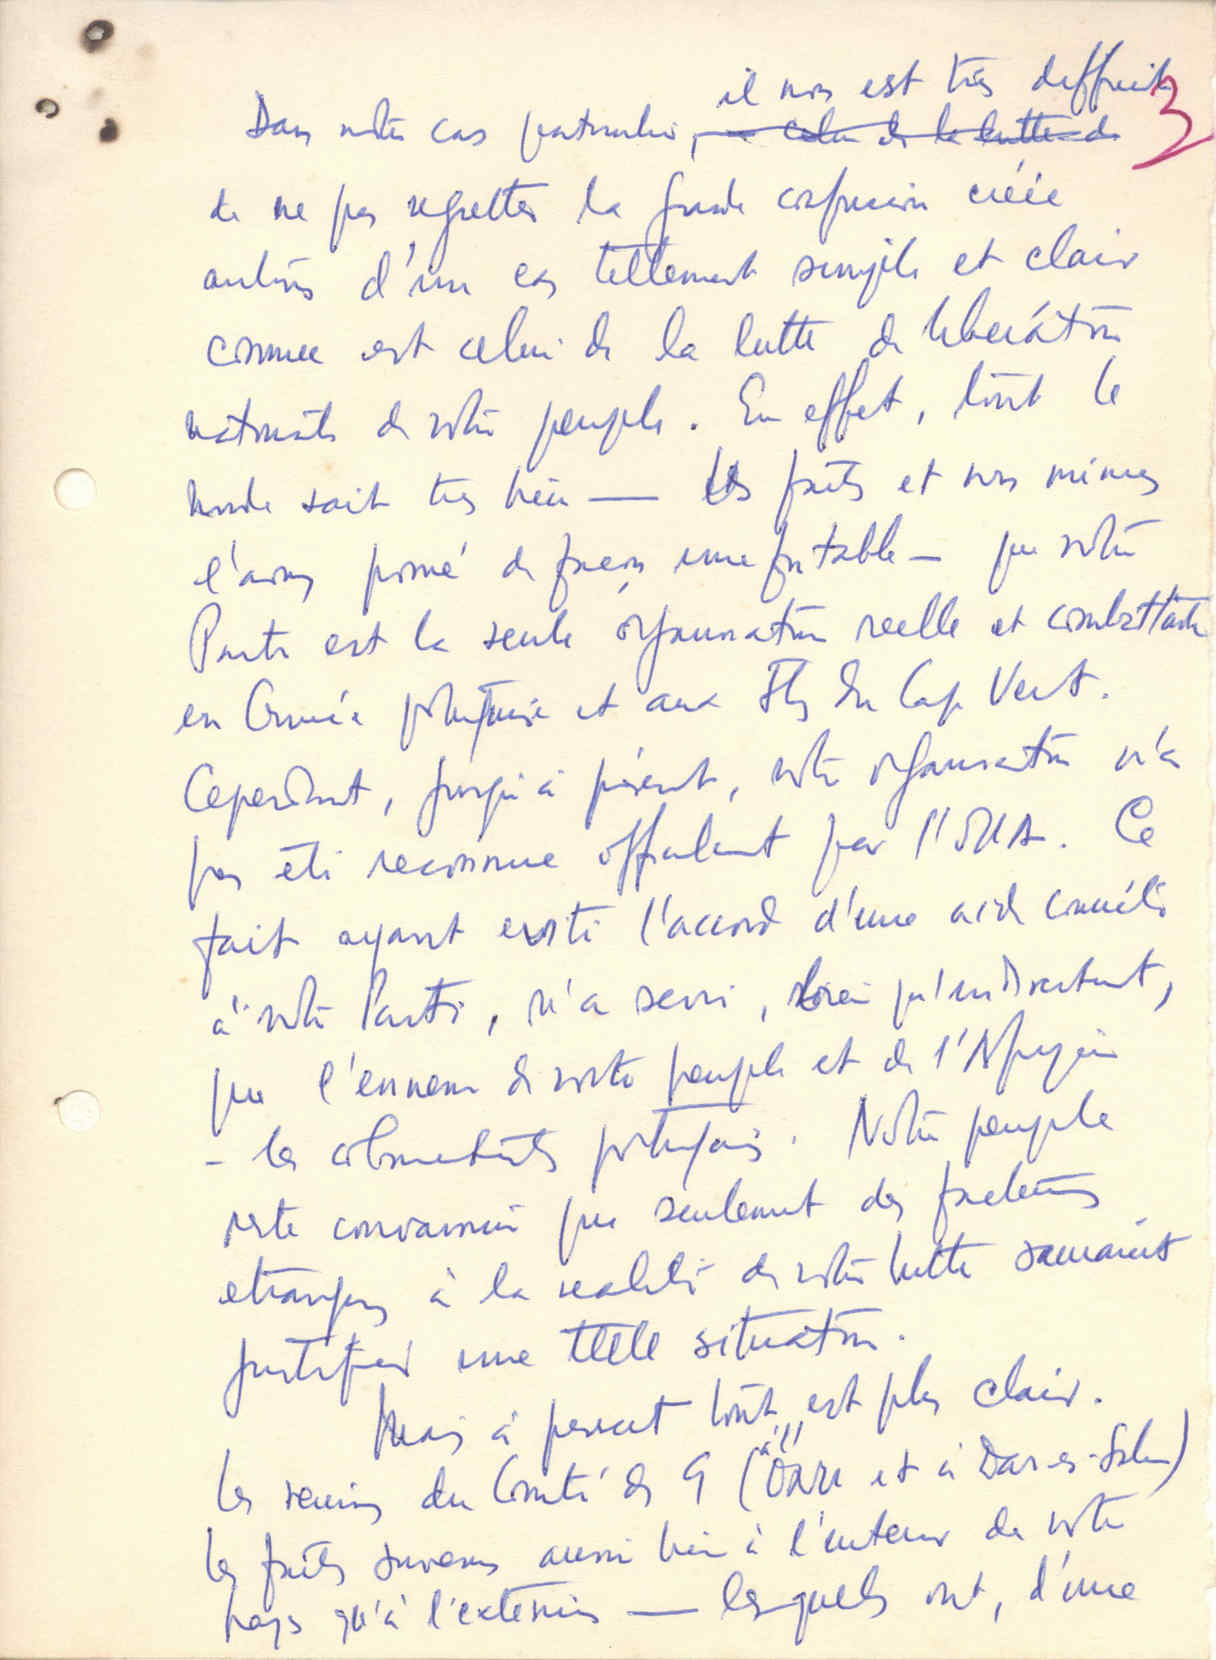 3
il nous est très difficile
Dans notre cas particulier, - celui de la lutte de
de ne pas regretter la grande confusion créée
autour d'un cas tellement simple et clair
comme est celui de la lutte de libération
nationale de notre peuple. En effet, tout le
monde sait très bien — les faits et nous mêmes
l'avons prouvé de façon irréfutable — que notre
Parti est la seule organisation réelle et combattante
en Guinée portugaise et aux Iles du Cap Vert.
Cependant, jusqu'à présent, notre organisation n'a
pas été reconnue officiellement par l'OUA. Ce
fait ayant évité l'accord d'une aide concrète
à notre Parti, n'a servi, bien qu'indirectement,
que l'ennemi de notre peuple et de l'Afrique
- les colonialistes portugais. Notre peuple
reste convaincu que seulement des facteurs
étrangers à la réalité de notre lutte sauraient
justifier une telle situation.
Mais à present tout est plus clair.
Les reunions du Comité des 9 (à Dakar et à Dar-es-Salam)
les faits survenus aussi bien à l'interieur de notre
pays qu'à l'exterieur — lesquels ont, d'une